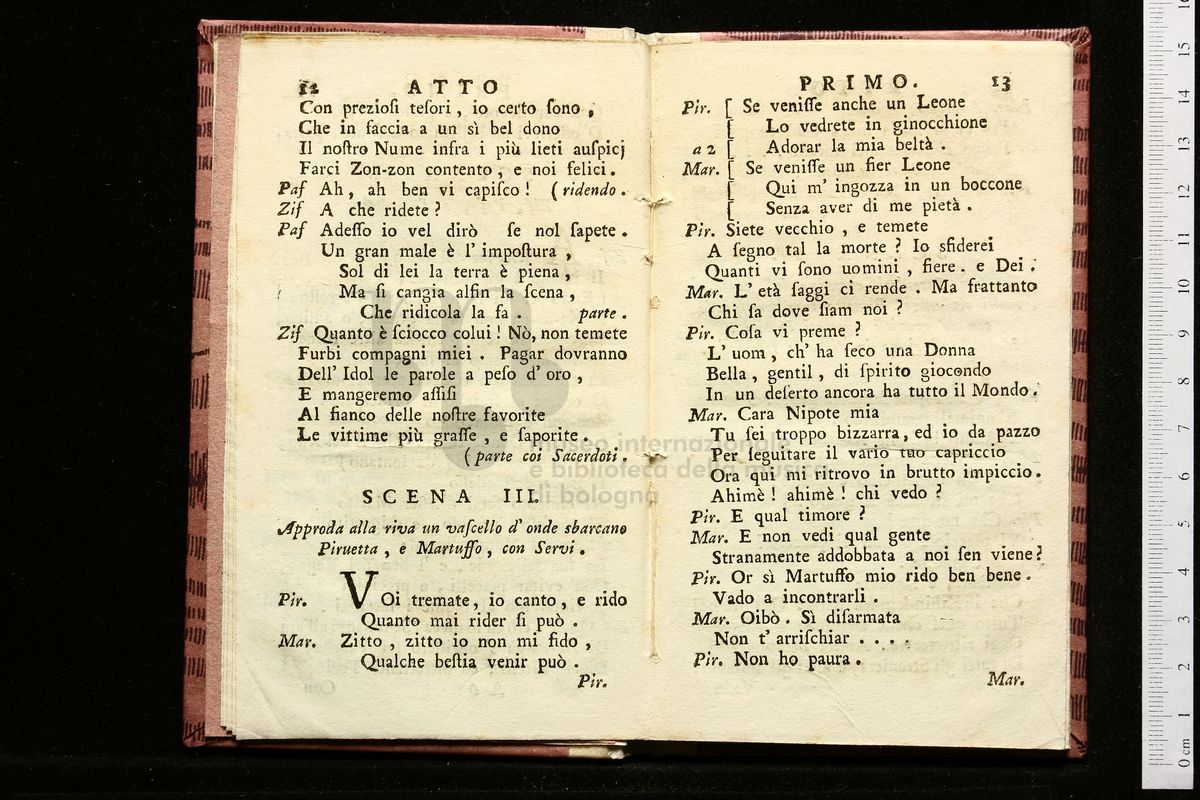 12 ATTO
Con prezioſi teſori, io certo ſono,
Che in faccia a un sì bel dono
Il noſtro Nume infra i più lieti auſpicj
Farci Zon-zon contento, e noi felici.
Paſ Ah, ah ben vi capiſco! (ridendo.
Zif A che ridete?
Paſ Adeſſo io vel dirò ſe nol ſapete.
Un gran male è l' impoſtura,
Sol di lei la terra è piena,
Ma ſi cangia alfin la ſcena,
Che ridicola la fa parte.
Zif Quanto è ſciocco colui! Nò, non temete
Furbi compagni miei. Pagar dovranno
Dell' Idol le parole a peſo d' oro,
E mangeremo aſſiſi
Al fianco delle noſtre favorite
Le vittime più graſſe, e ſaporite.
(parte coi Sacerdoti.
SCENA III.
Approda alla riva un vaſcello d' onde sbarcano
Piruetta, e Martuffo, con Servi.
Pir. Voi tremate, io canto, e rido
Quanto mai rider ſi può.
Mar. Zitto, zitto io non mi fido,
Qualche beſtia venir può.
Pir.
PRIMO. 13
Pir. [ Se veniſſe anche un Leone
[ Lo vedrete in ginocchione
a 2 [ Adorar la mia beltà.
Mar. [ Se veniſſe un fier Leone
[ Qui m' ingozza in un boccone
[ Senza aver di me pietà.
Pir. Siete vecchio, e temete
A ſegno tal la morte? Io sfiderei
Quanti vi ſono uomini, fiere. e Dei.
Mar. L' età ſaggi ci rende. Ma frattanto
Chi ſa dove ſiam noi?
Pir. Coſa vi preme?
L' uom, ch' ha ſeco una Donna
Bella, gentil, di ſpirito giocondo
In un deſerto ancora ha tutto il Mondo.
Mar. Cara Nipote mia
Tu ſei troppo bizzarra, ed io da pazzo
Per ſeguitare il vario tuo capriccio
Ora qui mi ritrovo in brutto impiccio.
Ahimè! ahimè! chi vedo?
Pir. E qual timore?
Mar. E non vedi qual gente
Stranamente addobbata a noi ſen viene?
Pir. Or sì Martuffo mio rido ben bene.
Vado a incontrarli.
Mar. Oibò. Sì diſarmata
Non t' arriſchiar . . . .
Pir. Non ho paura.
Mar.
museo internazionale
e biblioteca della musica
di bologna
0 cm 1 2 3 4 5 6 7 8 9 10 11 12 13 14 15 16